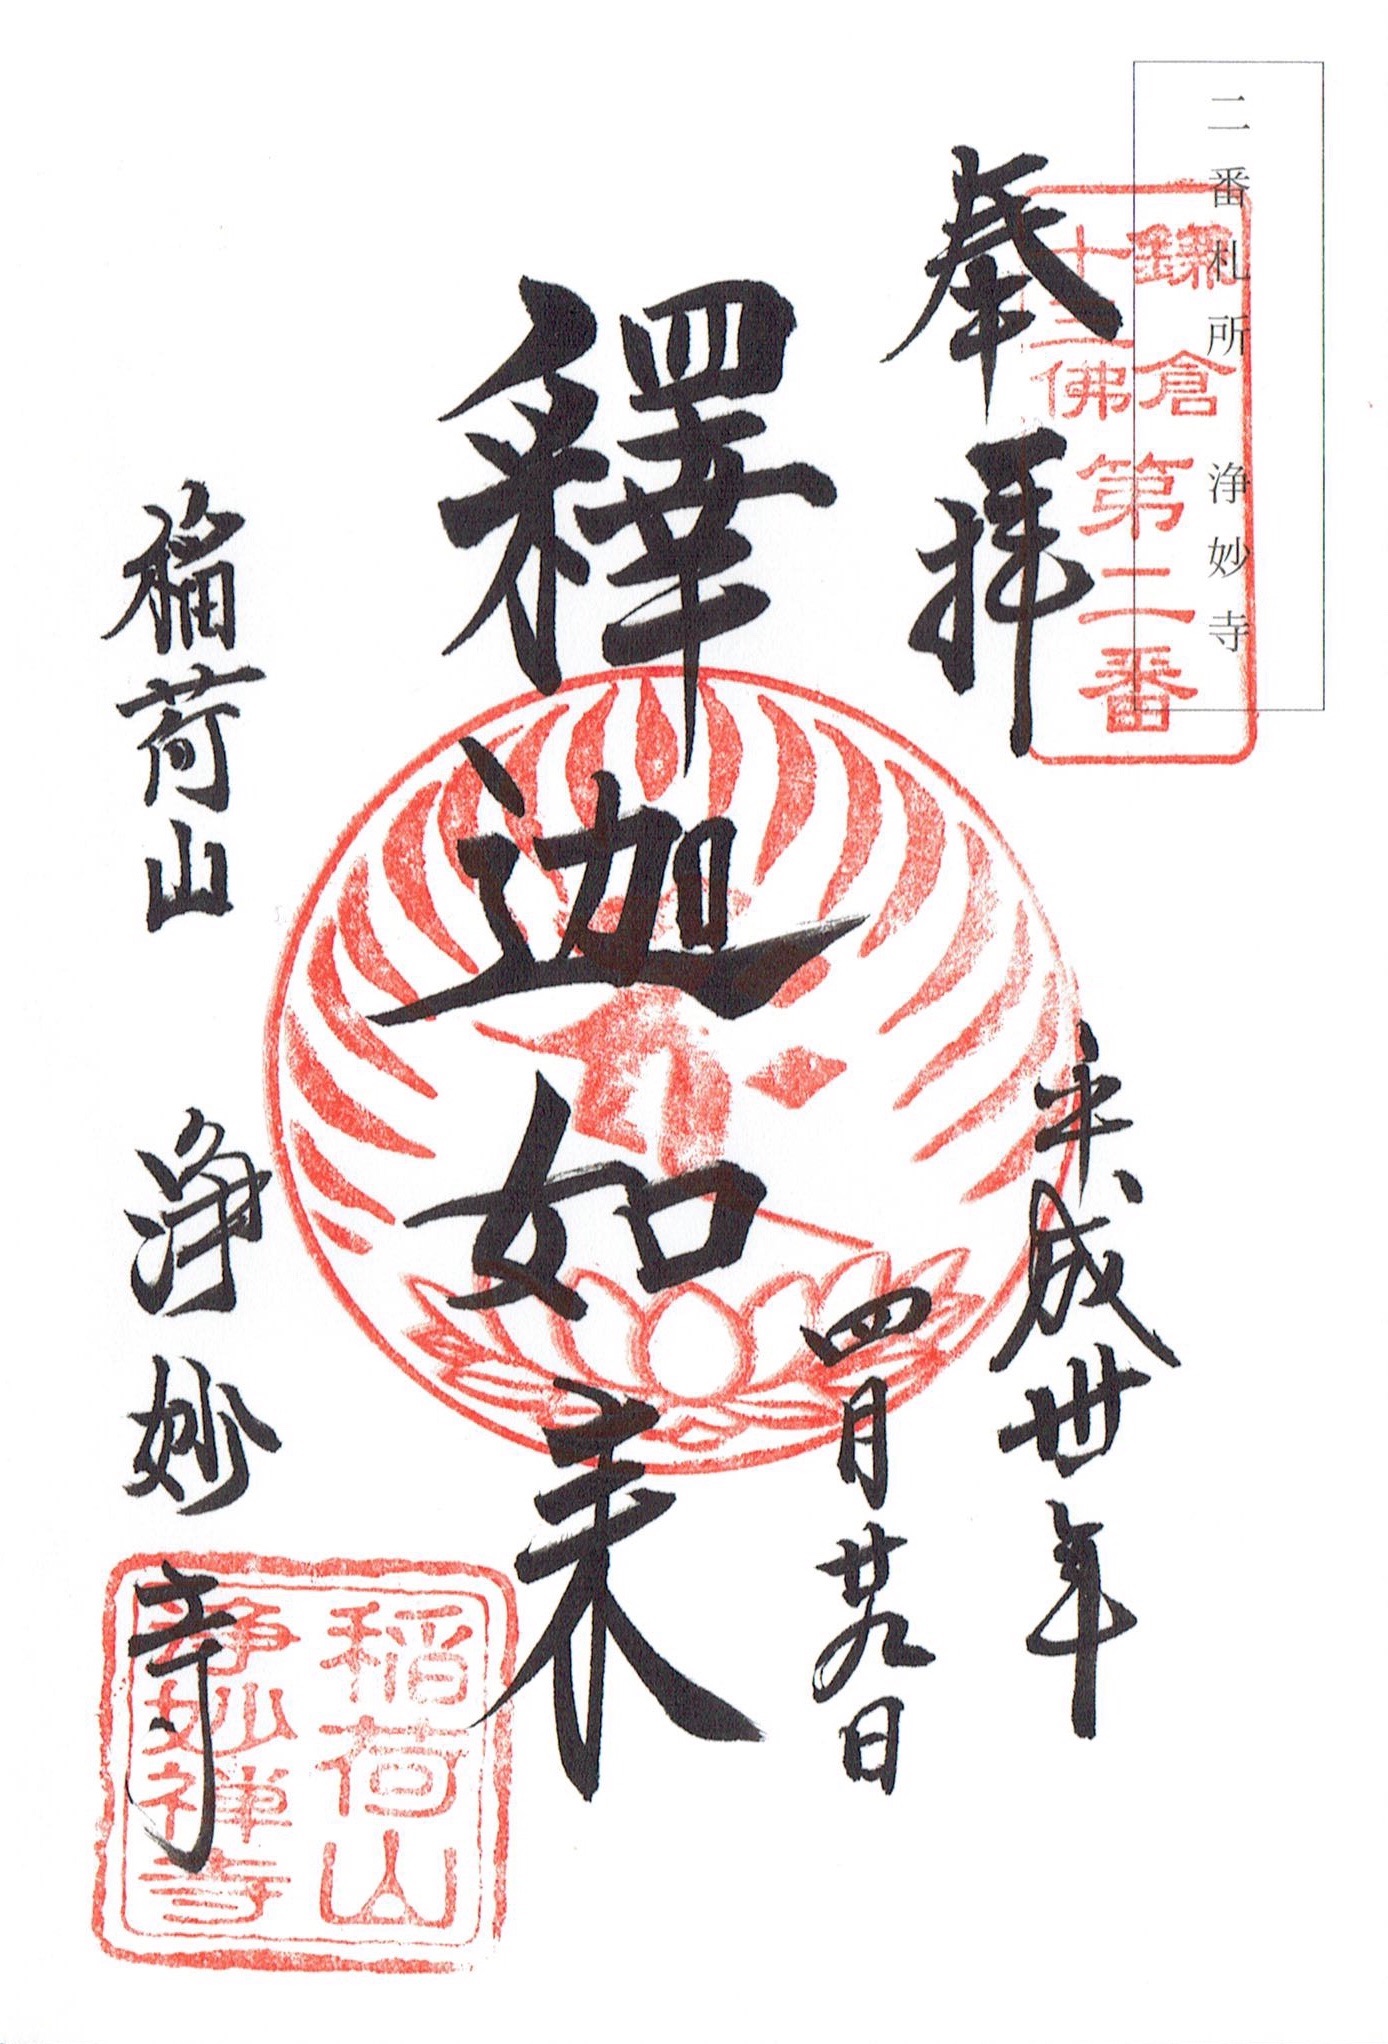 二番札所 浄妙寺
鎌倉
十三佛
第二番
奉拝
平成卅年
四月廿九日
釋迦如来
稲荷山 浄妙寺
稲荷山
浄妙禅寺